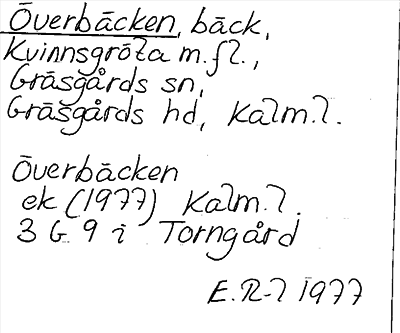 Överbäcken, bäck,
Kvinnsgröta m.fl.,
Gräsgårds sn,
Gräsgårds hd, Kalm.l.
Överbäcken
ek (1977) Kalm.l.
3 G 9 i Torngård
E.R-l 1977